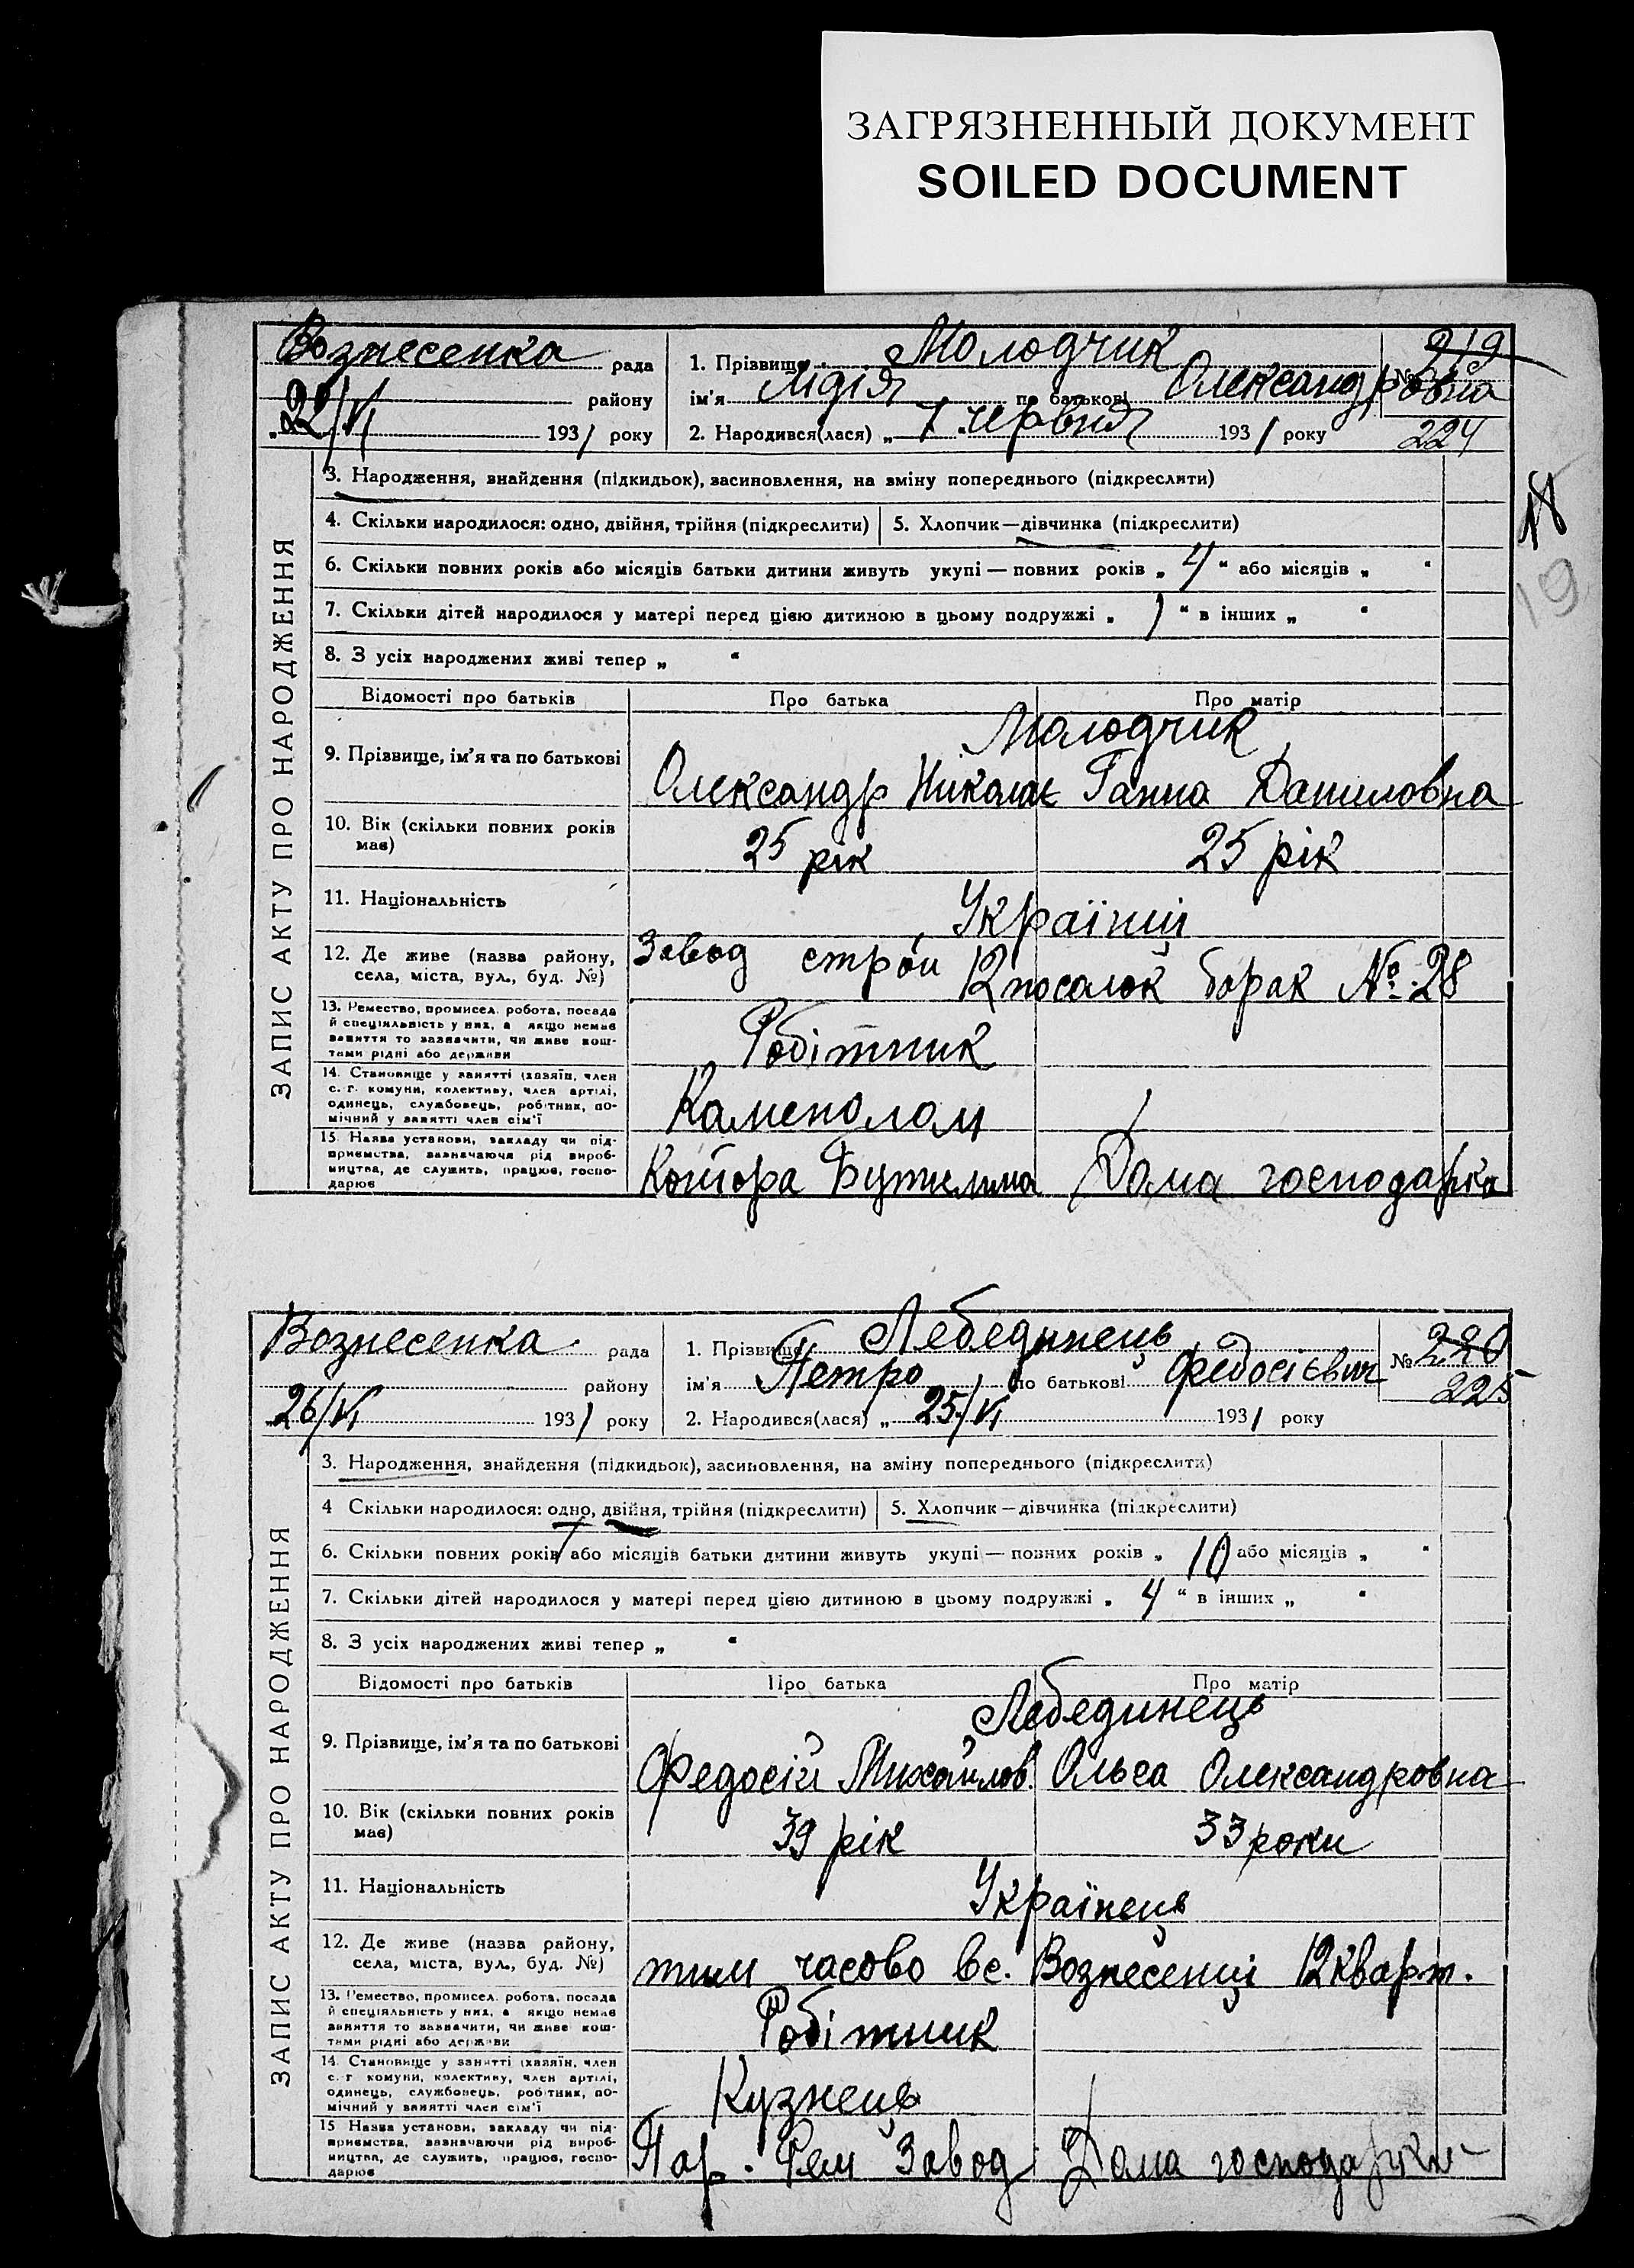 ЗАГРЯЗНЕННЫЙ ДОКУМЕНТ
SOILED DOCUMENT
Вознесенка рада
району
22/VI 1931 року
1. Прізвище Молодчик
ім'я Лідія по батькові Олександровна
2. Народився(лася) „ 7 червня 1931 року
№ 219
224
18
19
ЗАПИС АКТУ ПРО НАРОДЖЕННЯ
3. Народження, знайдення (підкидьок), засиновлення, на зміну попереднього (підкреслити)
4. Скільки народилося: одно, двійня, трійня (підкреслити) 5. Хлопчик—дівчинка (підкреслити)
6. Скільки повних років або місяців батьки дитини живуть укупі — повних років „ 4 “ або місяців „ “
7. Скільки дітей народилося у матері перед цією дитиною в цьому подружжі „ 1 “ в інших „ “
8. З усіх народжених живі тепер „ “
Відомості про батьків Про батька Про матір
Молодчик
9. Прізвище, ім'я та по батькові Олександр Николає Ганна Даниловна
10. Вік (скільки повних років має) 25 рік 25 рік
11. Національність Українці
12. Де живе (назва району, села, міста, вул., буд. №) Завод строй 12 посалок борак № 28
13. Ремество, промисел, робота, посада й спеціяльність у них, а якщо немає заняття то зазначити, чи живе коштами рідні або держави Робітник
14. Становище у занятті (хазяїн, член с.-г. комуни, колективу, член артілі, одинець, службовець, робітник, помічний у занятті член сім'ї Каменолом
15. Назва установи, закладу чи підприємства, зазначаючи рід виробництва, де служить, працює, господарює Контора Дома господарка
Вознесенка рада
району
26/VI 1931 року
1. Прізвище Лебединець
ім'я Петро по батькові Федосієвич
2. Народився(лася) „ 25/VI 1931 року
№ 220
225
ЗАПИС АКТУ ПРО НАРОДЖЕННЯ
3. Народження, знайдення (підкидьок), засиновлення, на зміну попереднього (підкреслити)
4 Скільки народилося: одно, двійня, трійня (підкреслити) 5. Хлопчик—дівчинка (підкреслити)
6. Скільки повних років або місяців батьки дитини живуть укупі — повних років „ 10 або місяців „ “
7. Скільки дітей народилося у матері перед цією дитиною в цьому подружжі „ 4 “ в інших „ “
8. З усіх народжених живі тепер „ “
Відомості про батьків Про батька Про матір
Лебединець
9. Прізвище, ім'я та по батькові Федосій Михайлов. Ольга Олександровна
10. Вік (скільки повних років має) 39 рік 33 роки
11. Національність Українець
12. Де живе (назва району, села, міста, вул., буд. №) тим часово в с. Вознесенці 12 кварт.
13. Ремество, промисел, робота, посада й спеціяльність у них, а якщо немає заняття то зазначити, чи живе коштами рідні або держави Робітник
14. Становище у занятті (хазяїн, член с.-г комуни, колективу, член артілі, одинець, службовець, робітник, помічний у занятті член сім'ї Кузнець
15 Назва установи, закладу чи підприємства, зазначаючи рід виробництва, де служить, працює, господарює Пар. Рем Завод Дома господарка